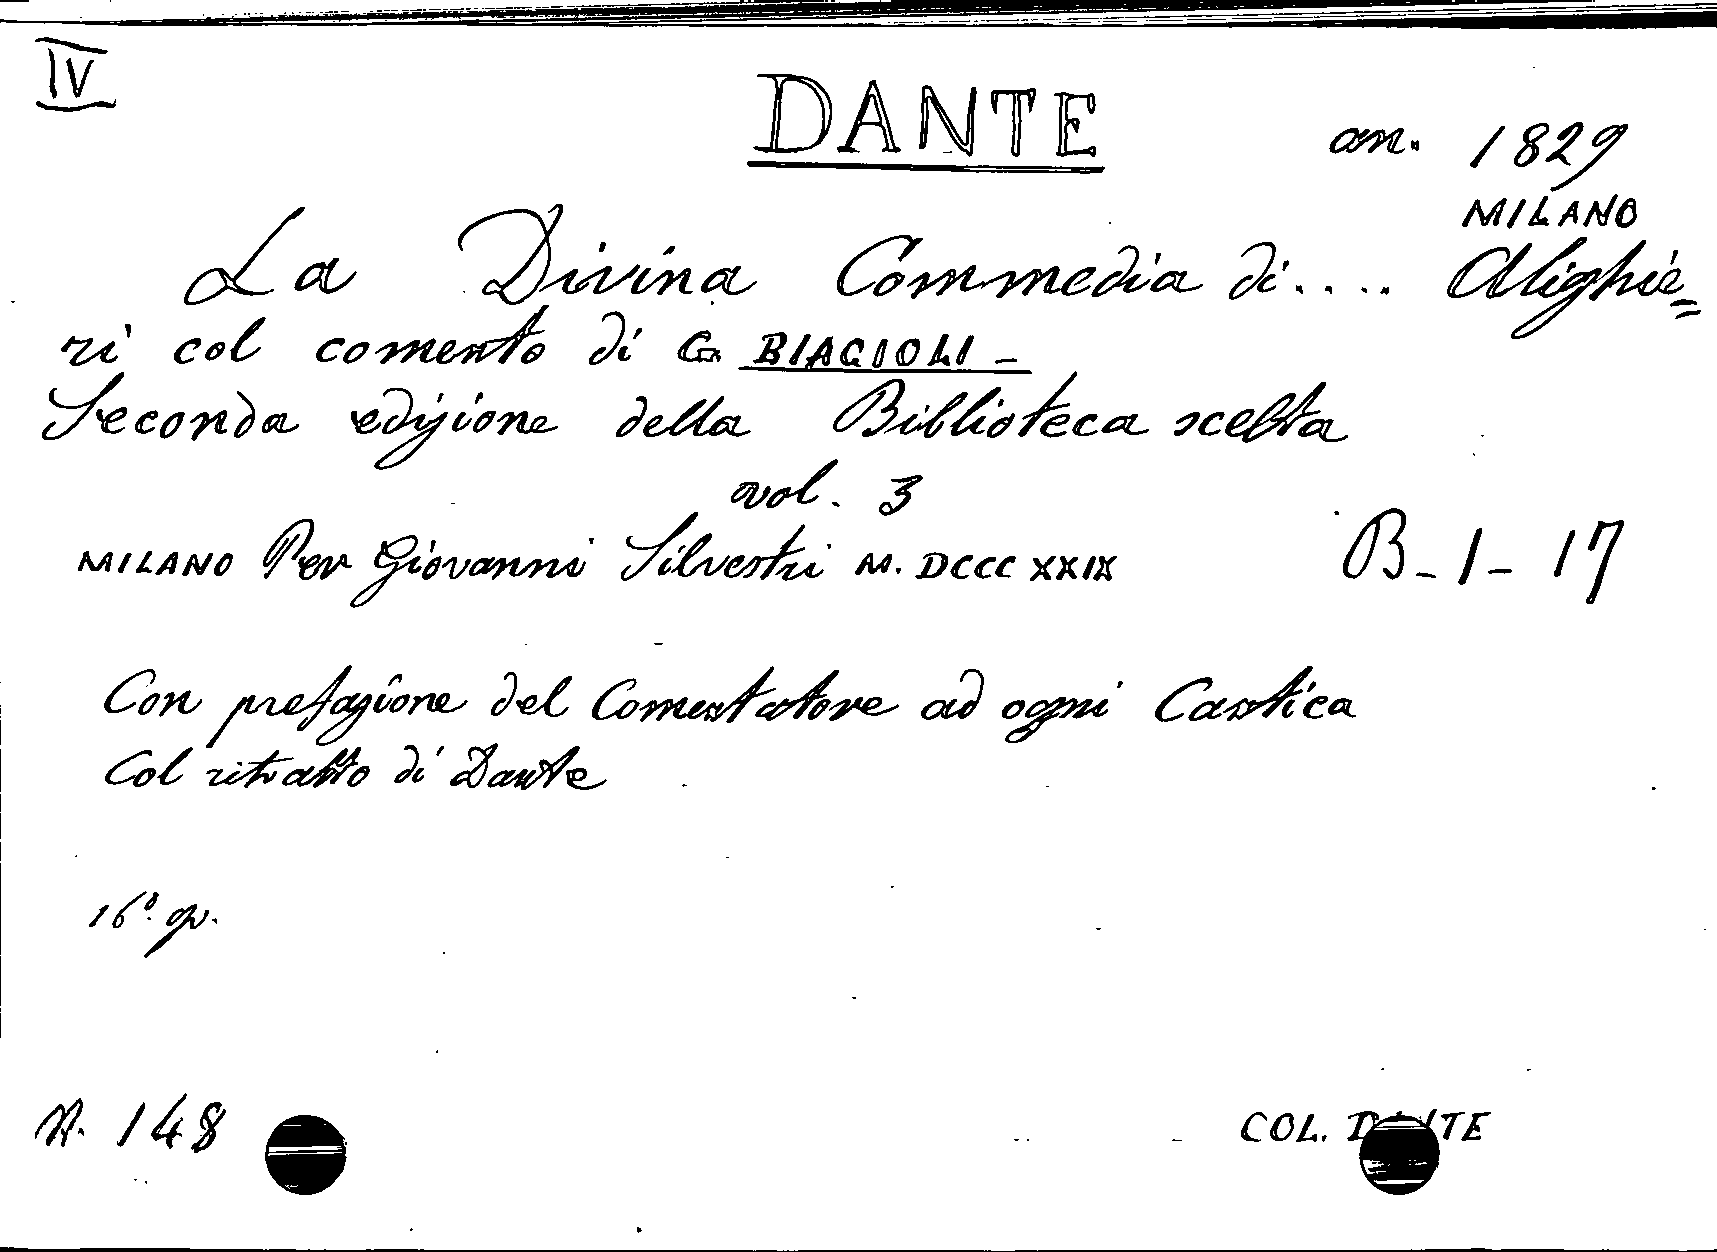 IV
DANTE
an. 1829
MILANO
La Divina Commedia di.... Alighie=
ri col comento di G. BIAGIOLI -
Seconda edizione della Biblioteca scelta
vol. 3
MILANO Per Giovanni Silvestri M. DCCC XXIX
B-1-17
Con prefazione del Comentatore ad ogni Cantica
Col ritratto di Dante
16°. gr.
N. 148
COL. DANTE